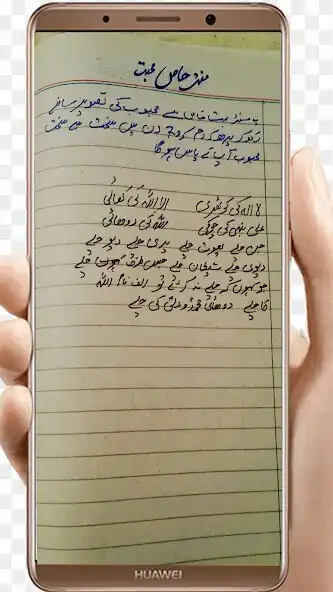 منتر خاص محبت
یہ منتر بہت خاص ہے محبوب کی تصویر سامنے
رکھ کر پڑھ کر دم کرو 7 دن میں سخت سے سخت
محبوب آپ کے پاس ہوگا
لا الہ کی کوٹھڑی الا اللہ کی کھائی
علی نبی کی چوکی اللہ کی دوھائی
جن چلے بھوت چلے پری چلے دیو چلے
دیوی چلے شیطان چلے جس طرف کہوں چلے
جو کہوں کہ چلے نہ کرے تو الف نام اللہ
کا چلے دوھائی محمد رسول کی چلے
HUAWEI